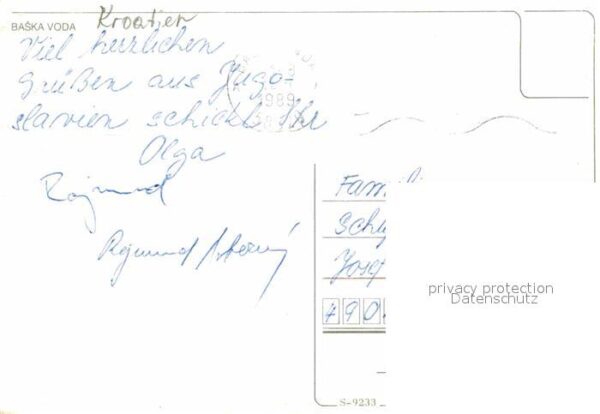 BAŠKA VODA Kroatien
Viel herzlichen
Grüßen aus Jugo-
slavien schickt Ihr
Olga
Rajmund
Rajmund
1989
Fam
Josef
790
privacy protection
Datenschutz
S-9233